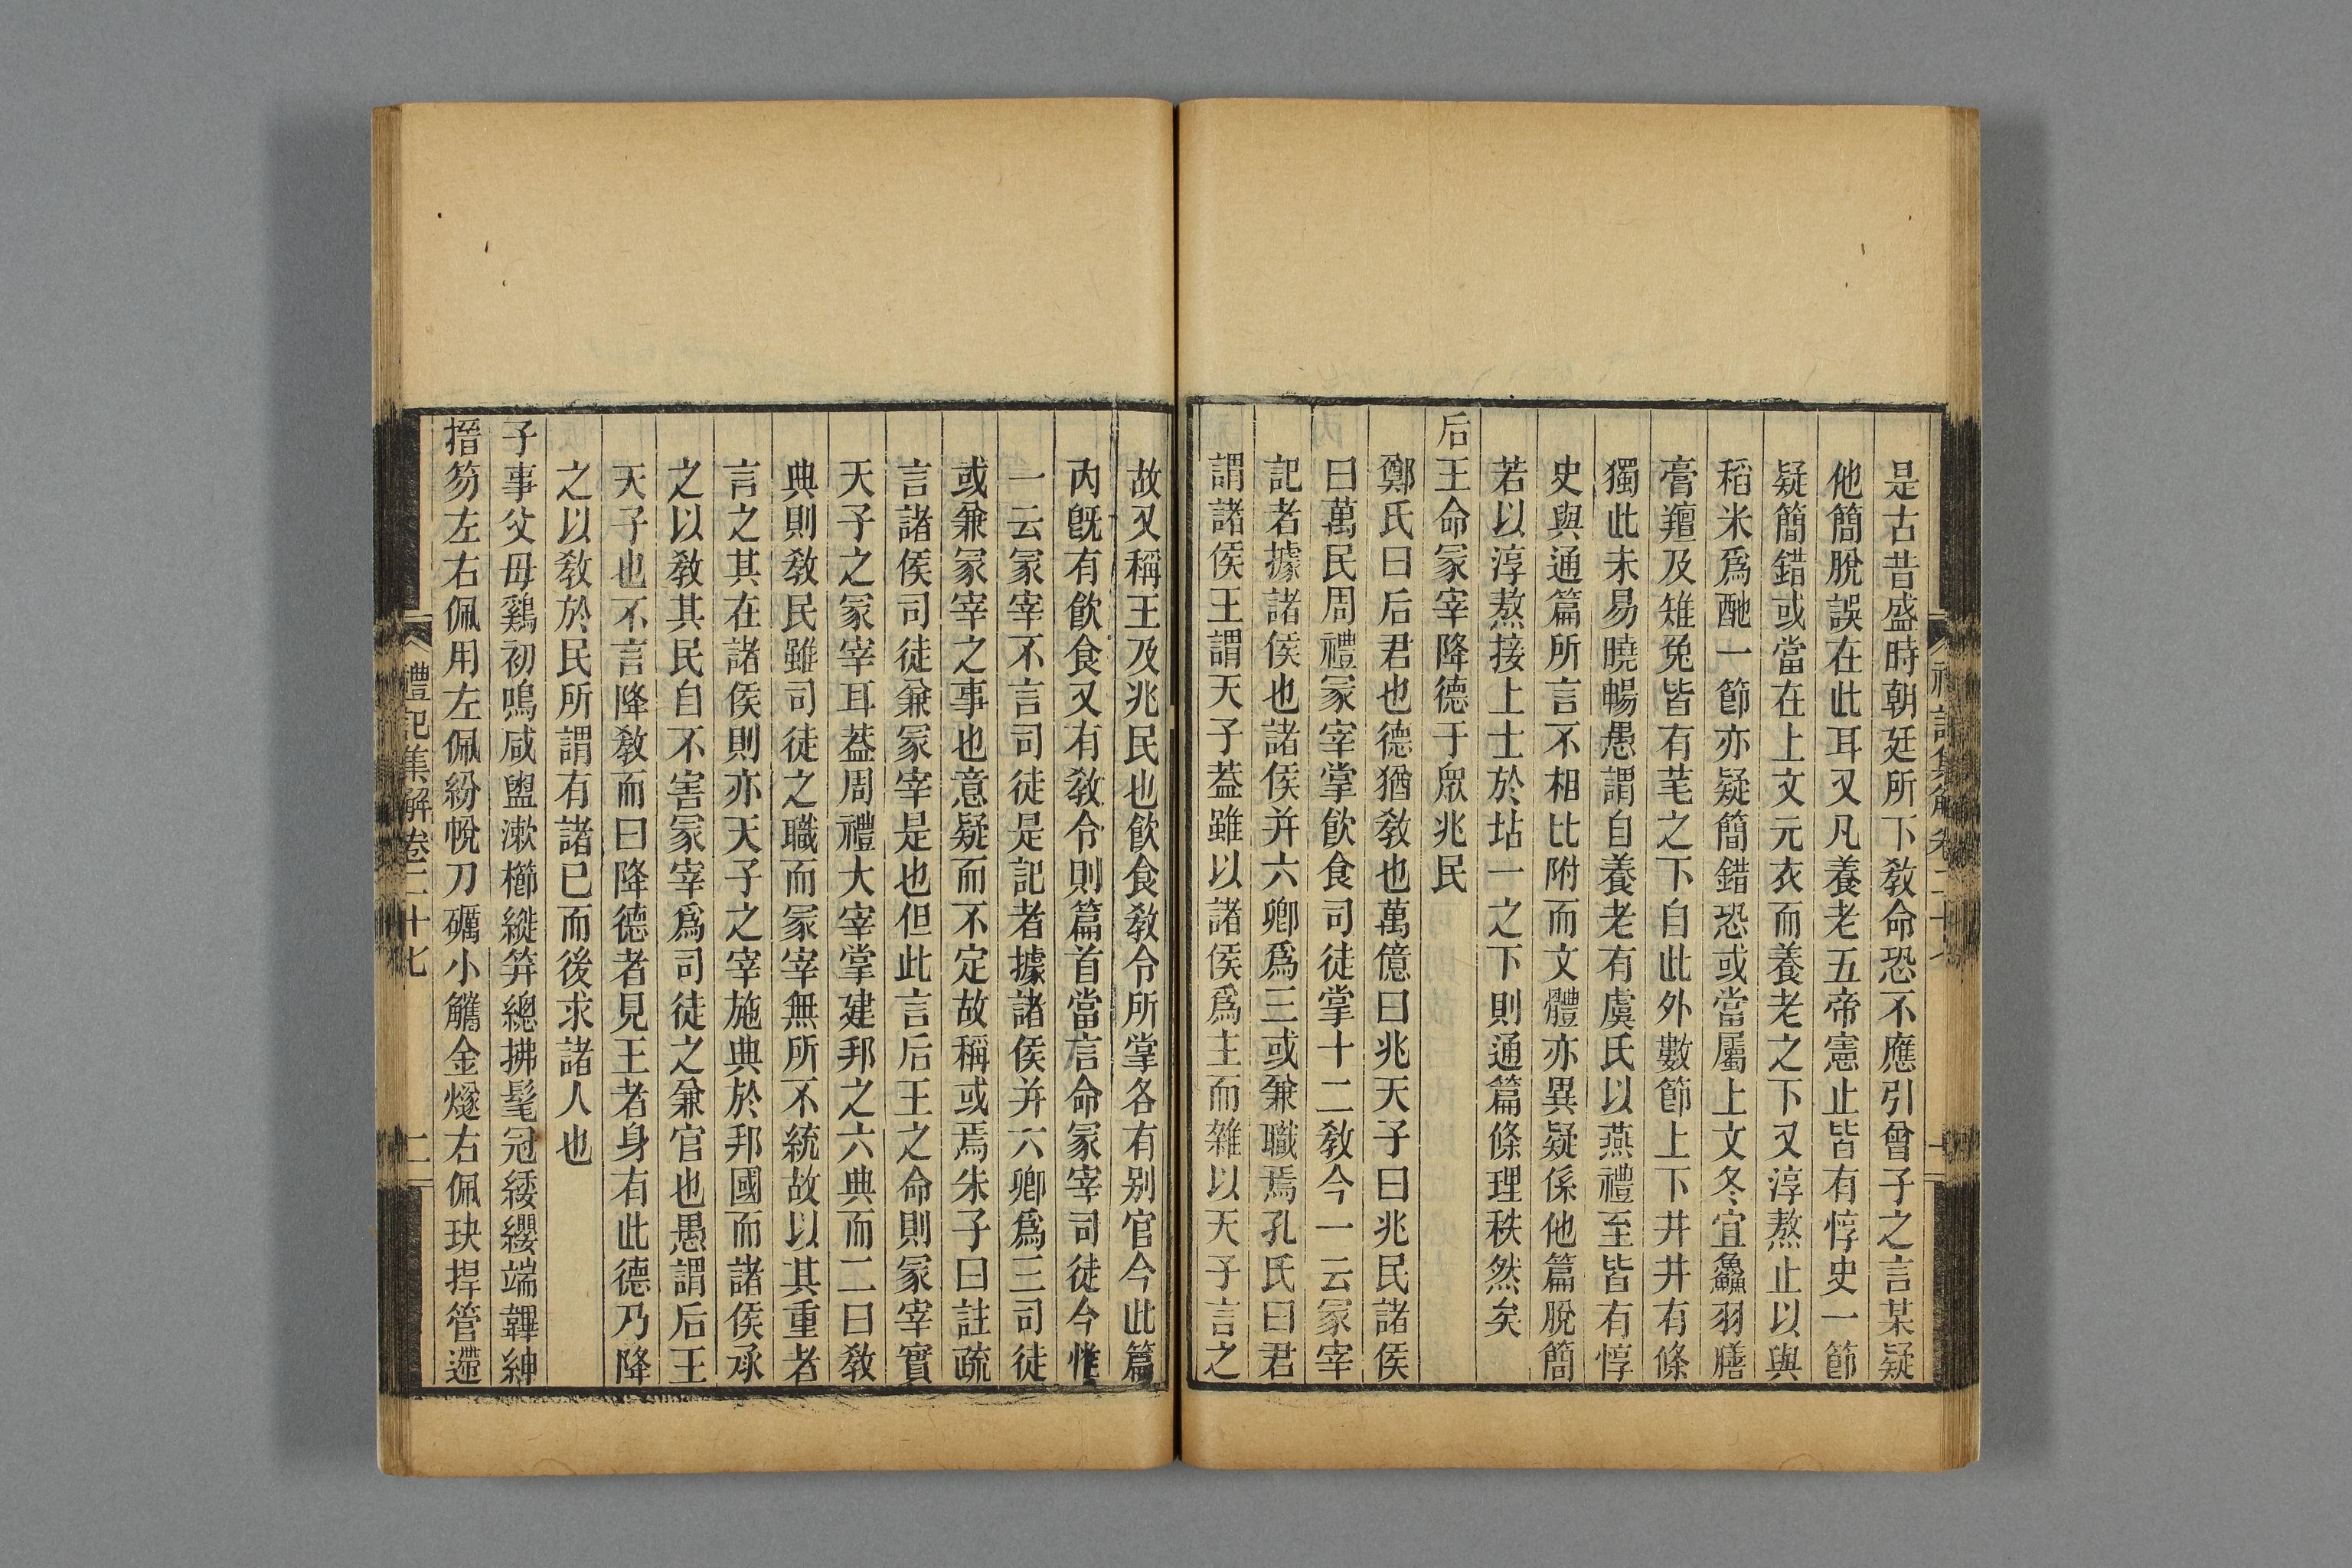 是古昔盛時朝廷所下敎命恐不應引曾子之言某疑
他簡脫誤在此耳又凡養老五帝憲止皆有惇史一節
疑簡錯或當在上文元衣而養老之下又淳熬止以與
稻米爲酏一節亦疑簡錯恐或當屬上文冬宜鱻羽膳
膏羶及雉兔皆有芼之下自此外數節上下井井有條
獨此未易曉暢愚謂自養老有虞氏以燕禮至皆有惇
史與通篇所言不相比附而文體亦異疑係他篇脫簡
若以淳熬接上士於坫一之下則通篇條理秩然矣
后王命冢宰降德于眾兆民
鄭氏曰后君也德猶敎也萬億曰兆天子曰兆民諸侯
曰萬民周禮冢宰掌飮食司徒掌十二敎今一云冢宰
記者據諸侯也諸侯并六卿爲三或兼職焉孔氏曰君
謂諸侯王謂天子葢雖以諸侯爲主而雜以天子言之
故又稱王及兆民也飮食敎令所掌各有别官今此篇
內旣有飮食又有敎令則篇首當言命冢宰司徒今惟
一云冢宰不言司徒是記者據諸侯并六卿爲三司徒
或兼冢宰之事也意疑而不定故稱或焉朱子曰註疏
言諸侯司徒兼冢宰是也但此言后王之命則冢宰實
天子之冢宰耳葢周禮大宰掌建邦之六典而二曰敎
典則敎民雖司徒之職而冢宰無所不統故以其重者
言之其在諸侯則亦天子之宰施典於邦國而諸侯承
之以敎其民自不害冢宰爲司徒之兼官也愚謂后王
天子也不言降敎而曰降德者見王者身有此德乃降
之以敎於民所謂有諸已而後求諸人也
子事父母雞初鳴咸盥漱櫛縰笄總拂髦冠緌纓端韠紳
搢笏左右佩用左佩紛帨刀礪小觿金燧右佩玦捍管遰
禮記集解卷二十七
二